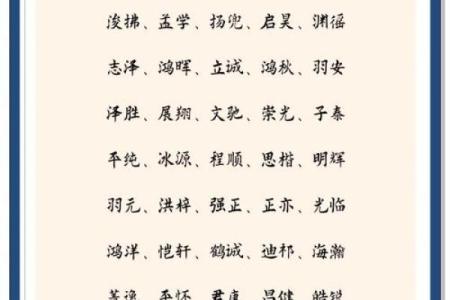 浚拂、孟学、扬兜、启昊、渊徭
志泽、鸿晖、立诚、鸿秋、羽安
泽胜、展翔、文驰、崇光、子泰
平纯、冰源、程顺、思楷、明辉
羽元、洪梓、强正、正亦、光临
鸿洋、恺轩、鹤诚、迪祁、海瀚
平怀、君康、昌健、皓锐